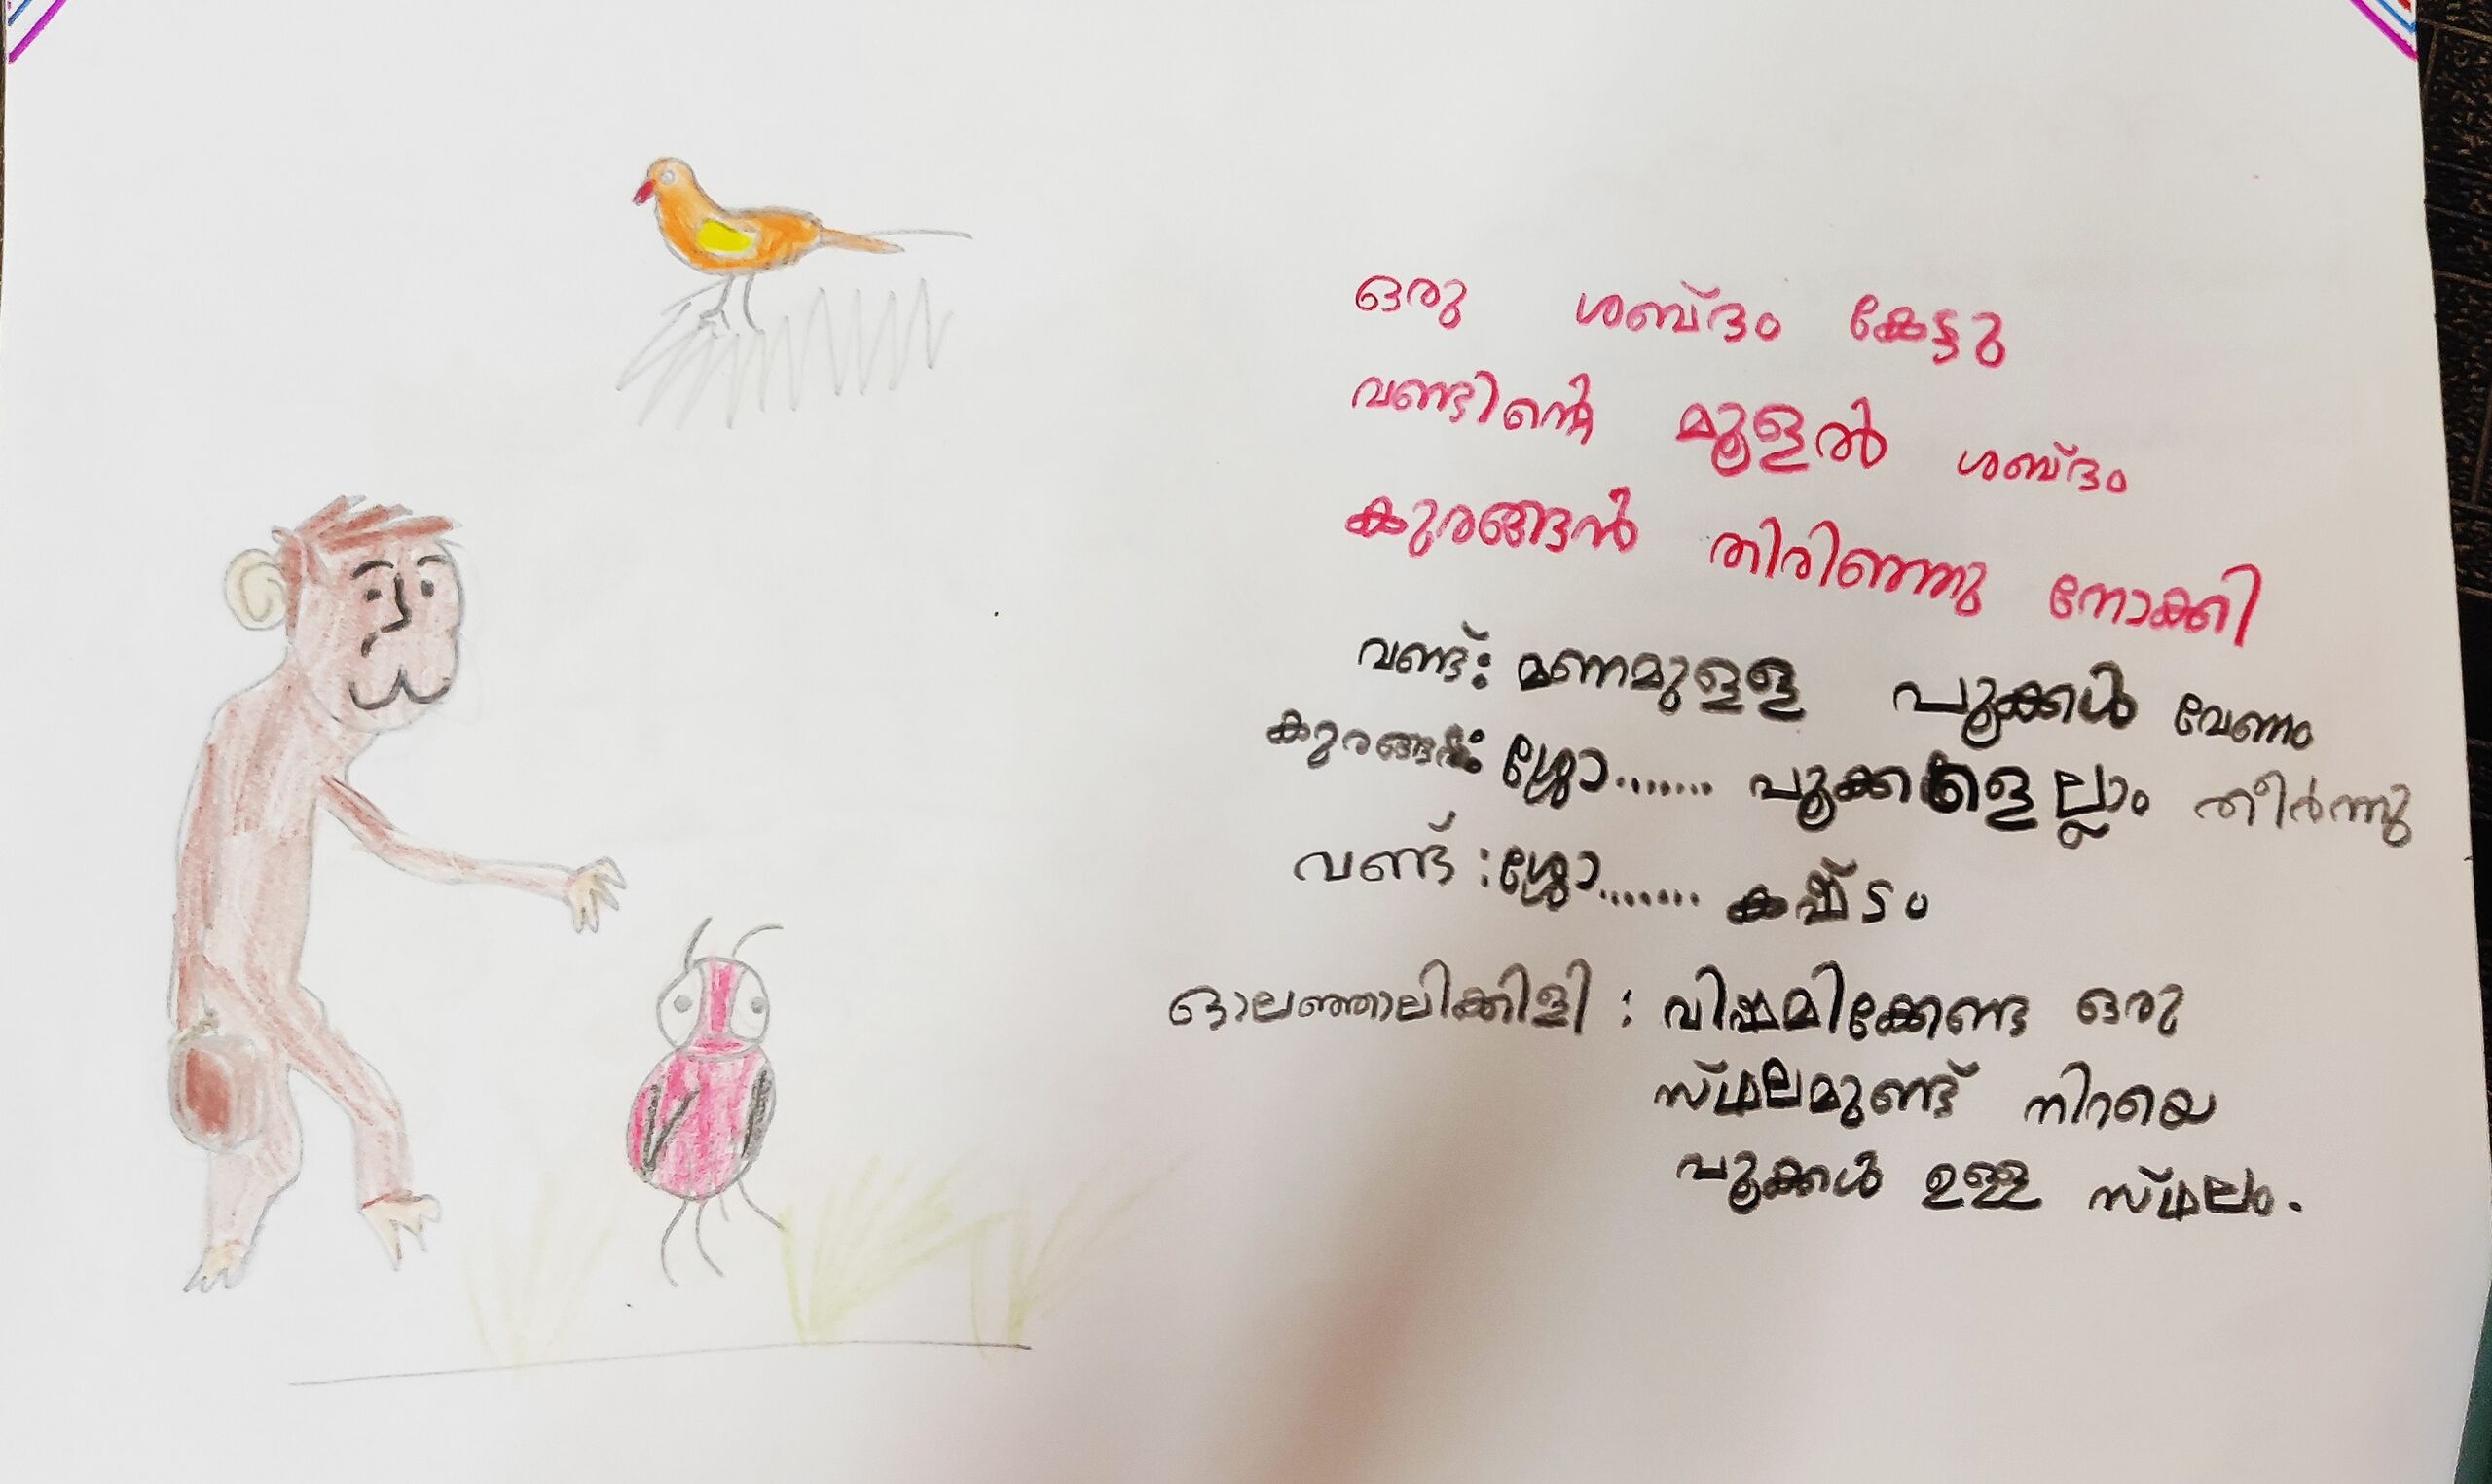 ഒരു ശബ്ദം കേട്ടു
വണ്ടിന്റെ മൂളൽ ശബ്ദം
കുരങ്ങൻ തിരിഞ്ഞു നോക്കി
വണ്ട്: മണമുള്ള പൂക്കൾ വേണം
കുരങ്ങൻ: ശ്ശോ....... പൂക്കളെല്ലാം തീർന്നു
വണ്ട് : ശ്ശോ....... കഷ്ടം
ഓലഞ്ഞാലിക്കിളി : വിഷമിക്കേണ്ട ഒരു
സ്ഥലമുണ്ട് നിറയെ
പൂക്കൾ ഉള്ള സ്ഥലം.